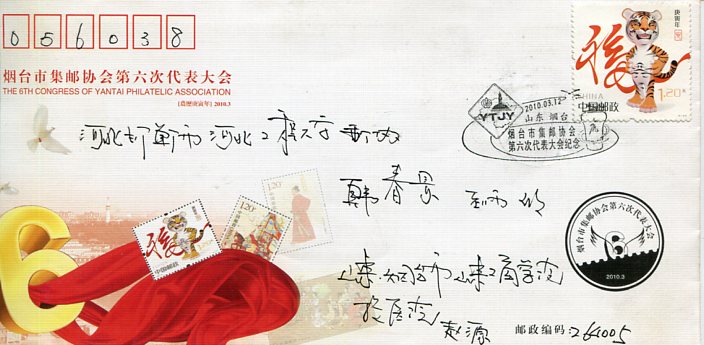 056038
烟台市集邮协会第六次代表大会
THE 6TH CONGRESS OF YANTAI PHILATELIC ASSOCIATION
[農曆庚寅年] 2010.3
庚寅年
福
CHINA
中国邮政
1.20
2010.03.12
YTJY
山东 烟台
烟台市集邮协会
第六次代表大会纪念
河北邯郸市河北工程大学
韩春景
福
中国邮政
1.20
烟台市集邮协会第六次代表大会
2010.3
山东烟台市山东工商学院
赵源
邮政编码:264005